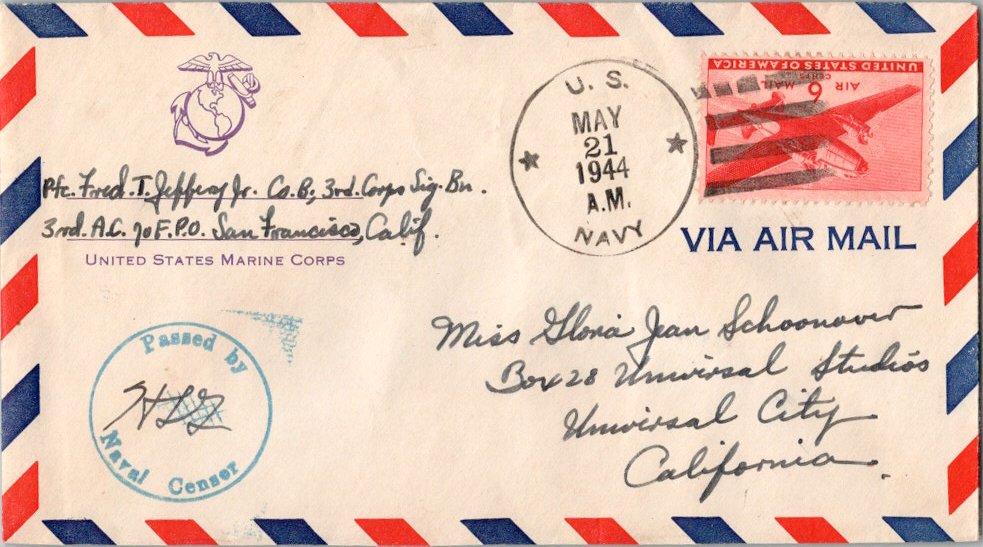 U. S.
MAY
21
1944
A.M.
NAVY
UNITED STATES OF AMERICA
6
CENTS
AIR MAIL
Pfc. Fred T. Jeffery Jr. Co. B, 3rd. Corps Sig. Bn.
3rd. A.C. % F.P.O. San Francisco, Calif.
UNITED STATES MARINE CORPS
VIA AIR MAIL
Passed by
Naval Censor
Miss Gloria Jean Schoonover
Box 28 Universal Studios
Universal City
California.